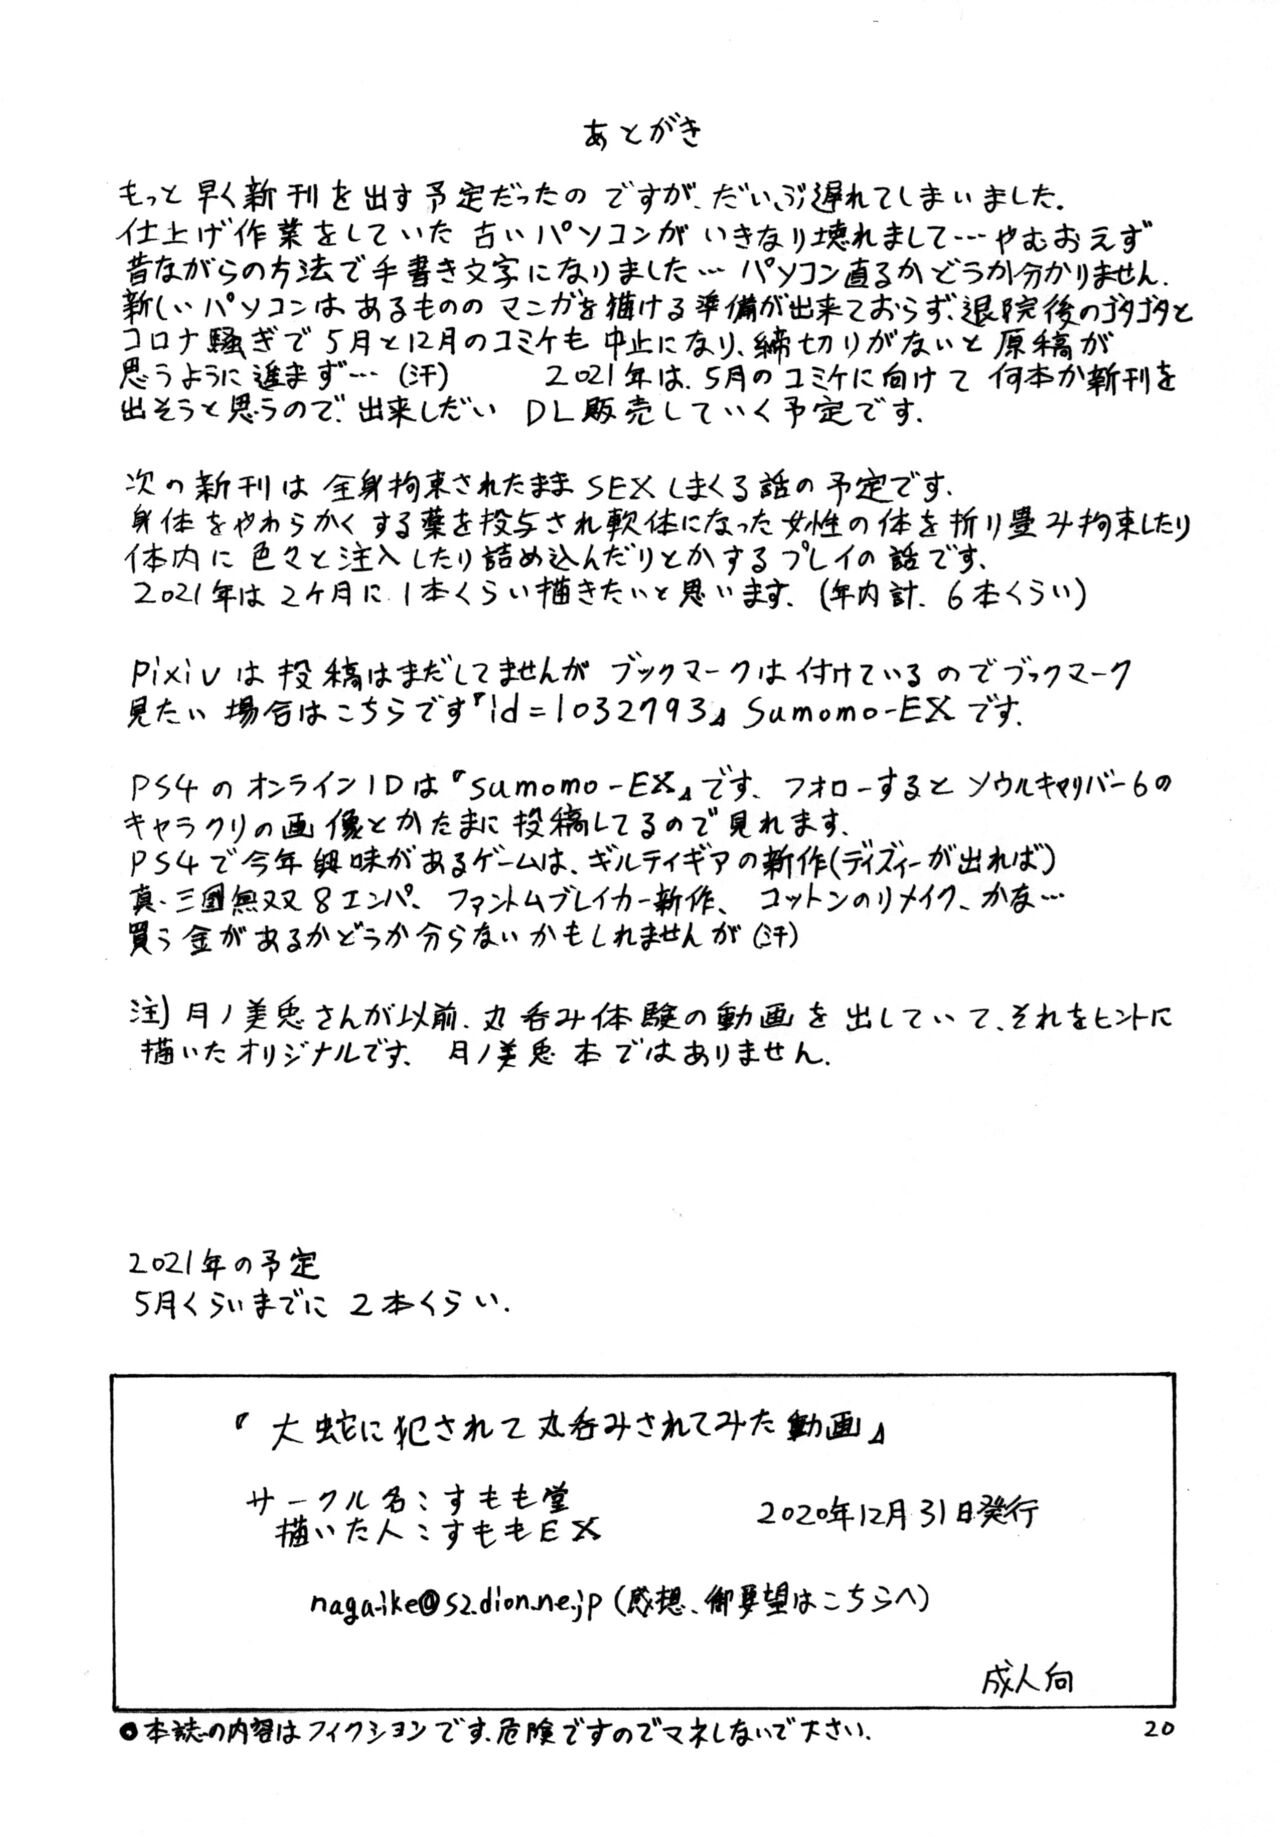 あとがき
もっと早く新刊を出す予定だったのですが、だいぶ遅れてしまいました.
仕上げ作業をしていた古いパソコンがいきなり壊れまして…やむおえず
昔ながらの方法で手書き文字になりました… パソコン直るかどうか分かりません.
新しいパソコンはあるもののマンガを描ける準備が出来ておらず、退院後のゴタゴタと
コロナ騒ぎで5月と12月のコミケも中止になり、締切りがないと原稿が
思うように進まず…(汗) 2021年は、5月のコミケに向けて何本か新刊を
出そうと思うので、出来しだい DL販売していく予定です.
次の新刊は全身拘束されたままSEXしまくる話の予定です.
身体をやわらかくする薬を投与され軟体になった女性の体を折り畳み拘束したり
体内に色々と注入したり詰め込んだりとかするプレイの話です.
2021年は2ケ月に1本くらい描きたいと思います.(年内計、6本くらい)
pixivは投稿はまだしてませんがブックマークは付けているのでブックマーク
見たい場合はこちらです『id=1032793』Sumomo-EXです.
PS4のオンラインIDは『sumomo-EX』です. フォローするとソウルキャリバー6の
キャラクリの画像とかたまに投稿してるので見れます.
PS4で今年興味があるゲームは、ギルティギアの新作(ディズィーが出れば)
真・三國無双8エンパ、ファントムブレイカー新作、コットンのリメイク、かな…
買う金があるかどうか分らないかもしれませんが(汗)
注)月ノ美兎さんが以前、丸呑み体験の動画を出していて、それをヒントに
描いたオリジナルです. 月ノ美兎本ではありません.
2021年の予定
5月くらいまでに2本くらい.
『大蛇に犯されて丸呑みされてみた動画』
サークル名:すもも堂
描いた人:すももEX
2020年12月31日発行
naga-ike@s2.dion.ne.jp (感想、御要望はこちらへ)
成人向
●本誌の内容はフィクションです.危険ですのでマネしないで下さい.
20